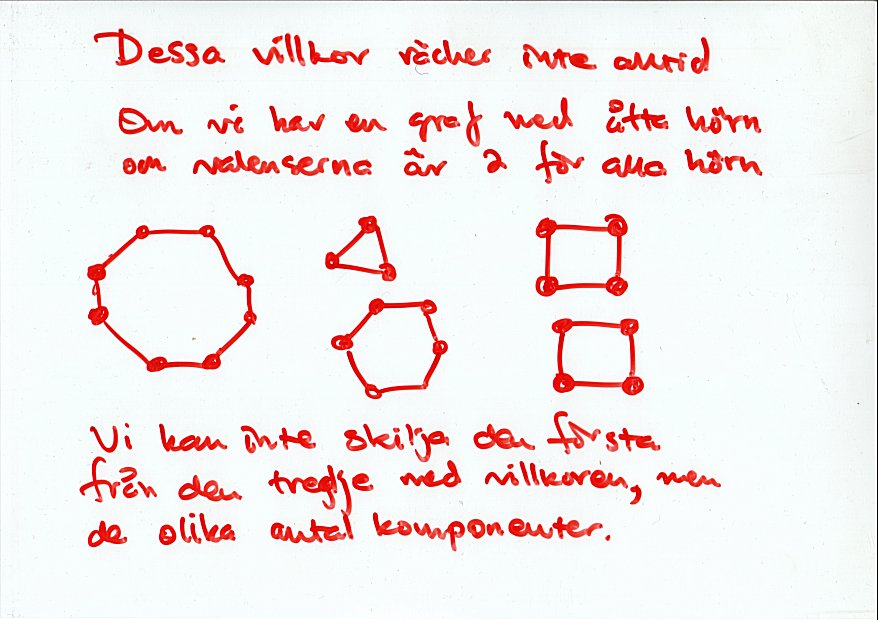 Dessa villkor räcker inte alltid
Om vi har en graf med åtta hörn
om valenserna är 2 för alla hörn
Vi kan inte skilja den första
från den tredje med villkoren, men
de olika antal komponenter.